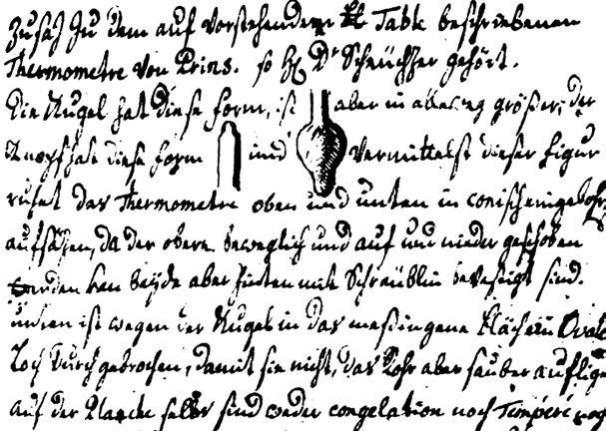 Zusaz zu dem auf vorstehender Table beschriebenen
Thermometre von Prins. so H. Dr Scheuchzer gehört.
Die Kugel hat diese form, ist aber in allweg größer; der
Knopf hat diese form und vermittelst dieser figur
ruhet das Thermometre oben und unten in conisch eingebohr
aufsäzen, da der obere beweglich und auf und nieder geschoben
werden kan beyde aber hinten mit Schräublin bevestigt sind.
unten ist wegen der Kugel in das meßingene Blächlin Oval
Loch durchgebrochen, damit sie nicht, das Rohr aber sauber auflige
auf der Plaache selbs sind weder congelation noch Temperé